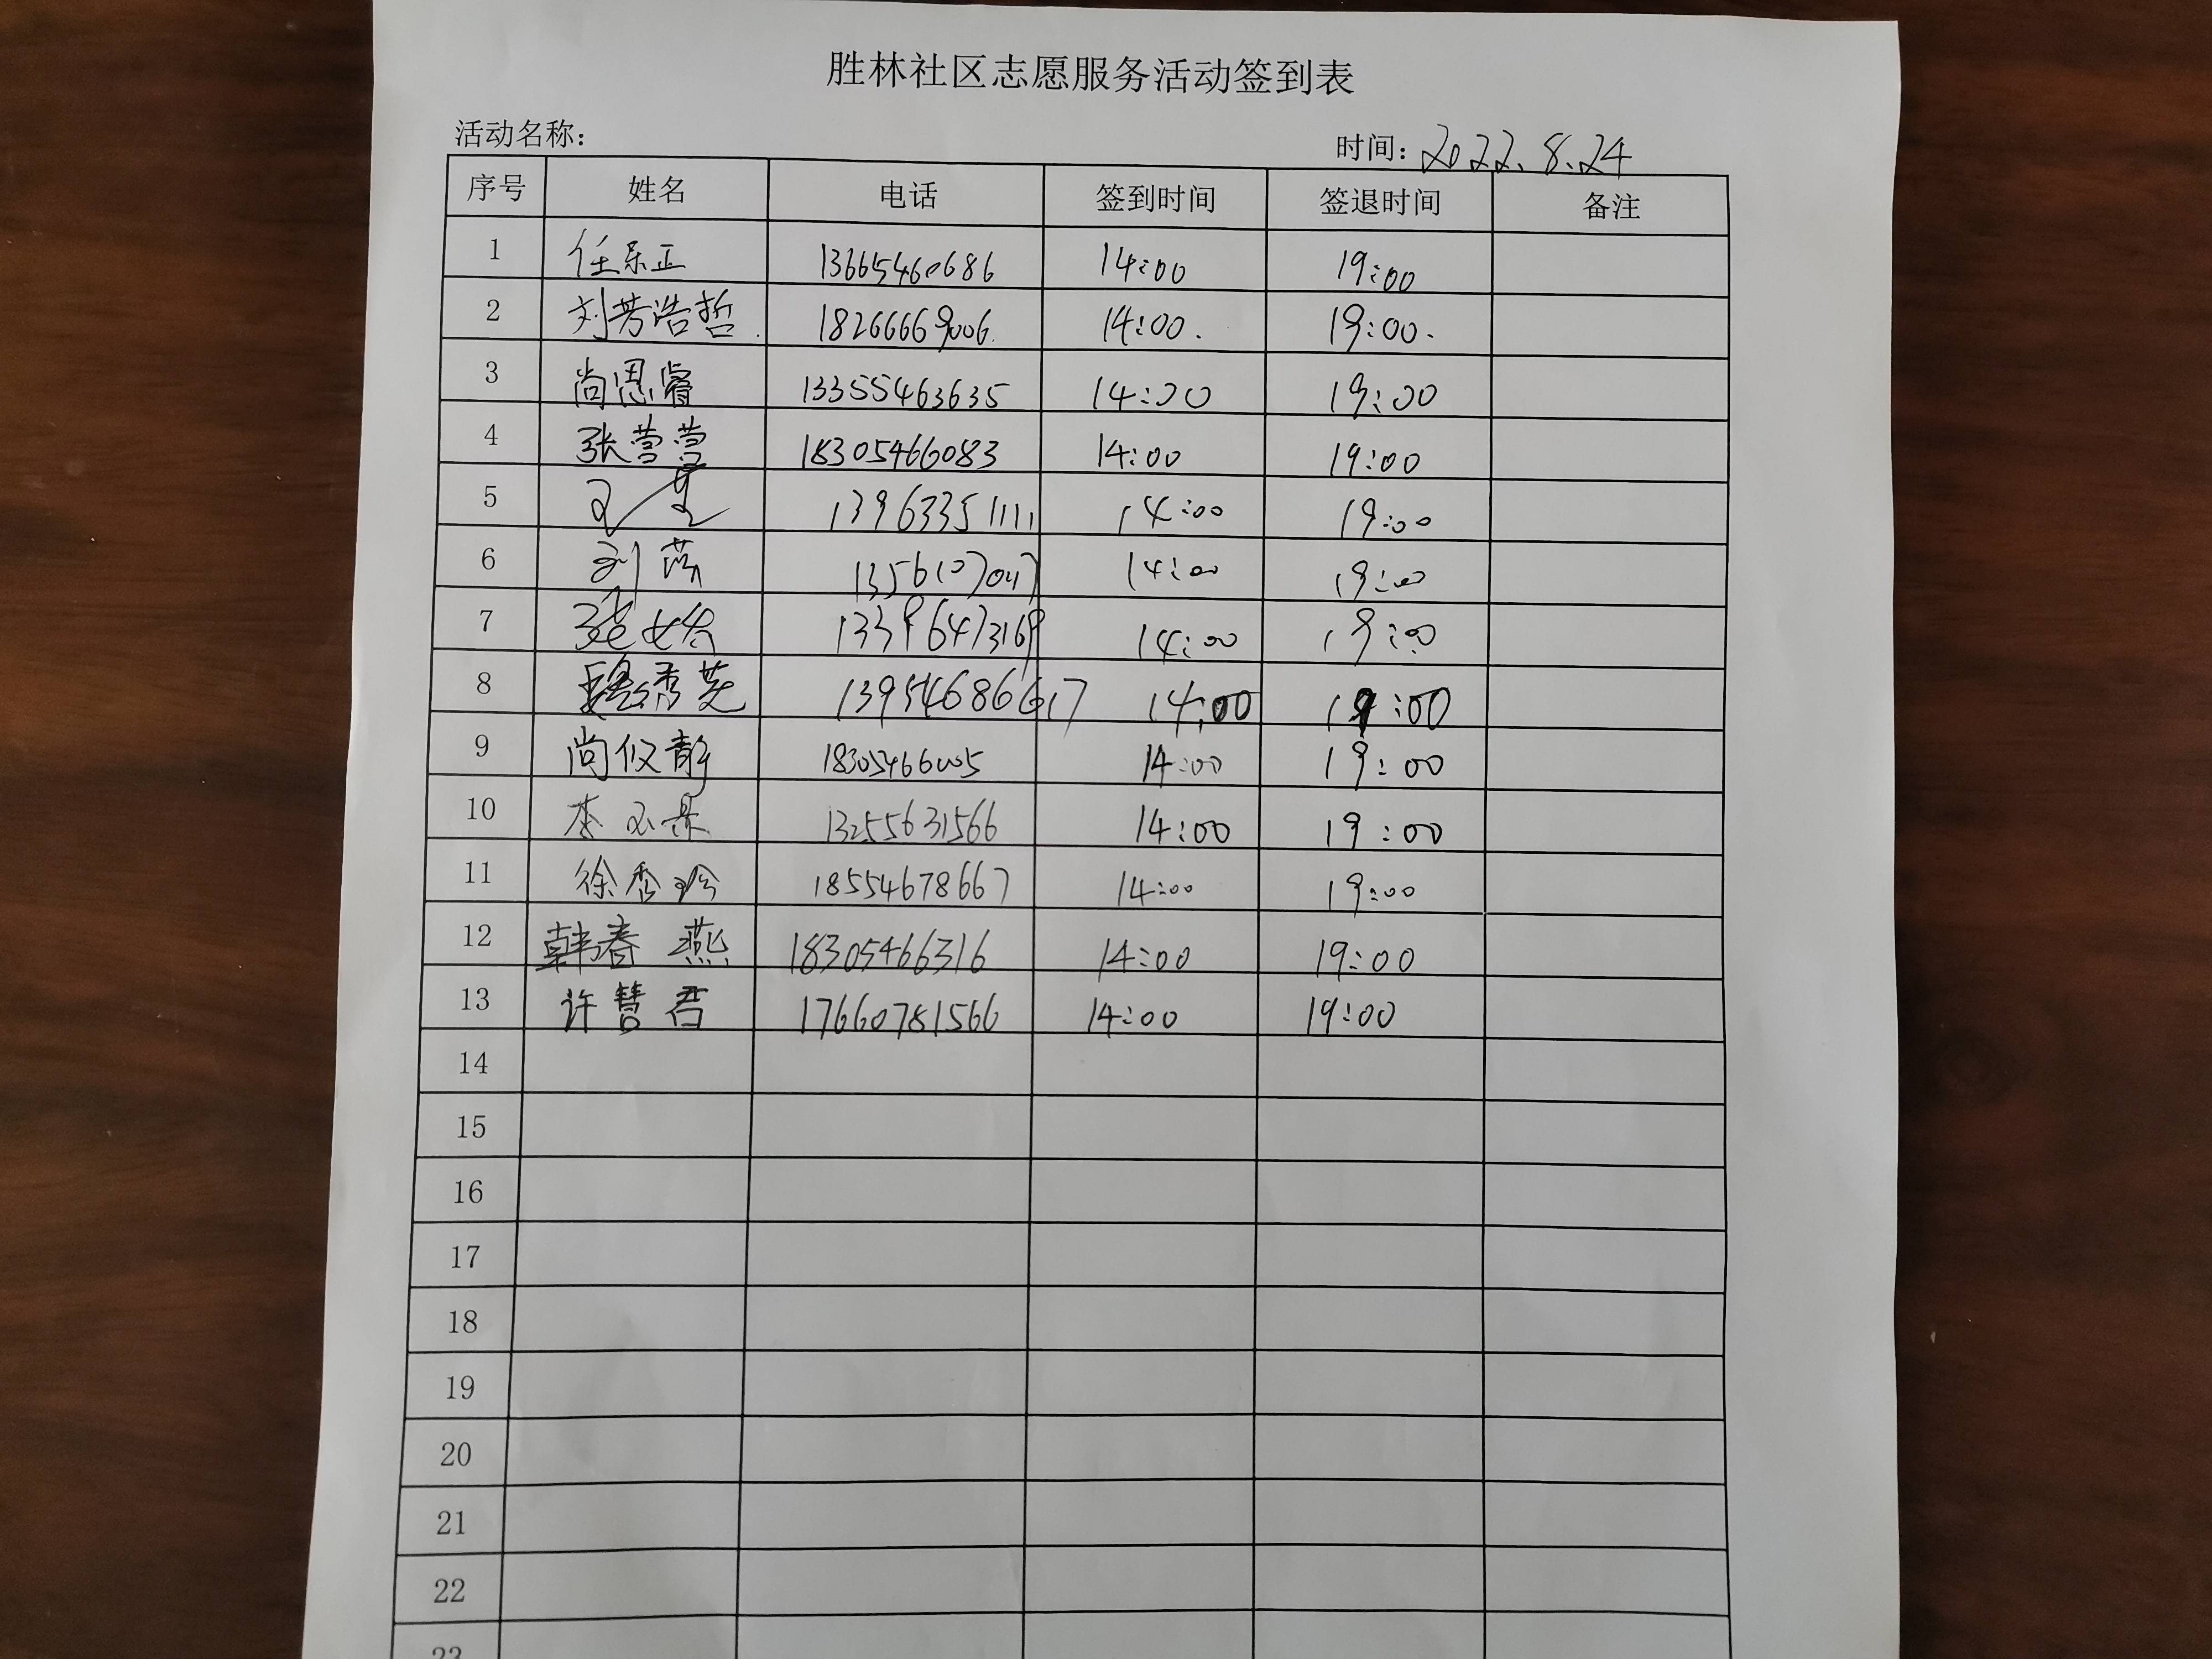 胜林社区志愿服务活动签到表
活动名称： 时间：2022.8.24
序号 姓名 电话 签到时间 签退时间 备注
1 任乐正 13665460686 14:00 19:00
2 刘芳浩哲 18266669006 14:00 19:00
3 尚恩睿 13355463635 14:00 19:00
4 张营营 18305466083 14:00 19:00
5 13963351111 14:00 19:00
6 14:00 19:00
7 13396473169 14:00 19:00
8 13954686617 14:00 19:00
9 尚仪静 18305466005 14:00 19:00
10 13255631566 14:00 19:00
11 徐秀玲 18554678667 14:00 19:00
12 韩春燕 18305466316 14:00 19:00
13 许慧君 17660781566 14:00 19:00
14
15
16
17
18
19
20
21
22
23